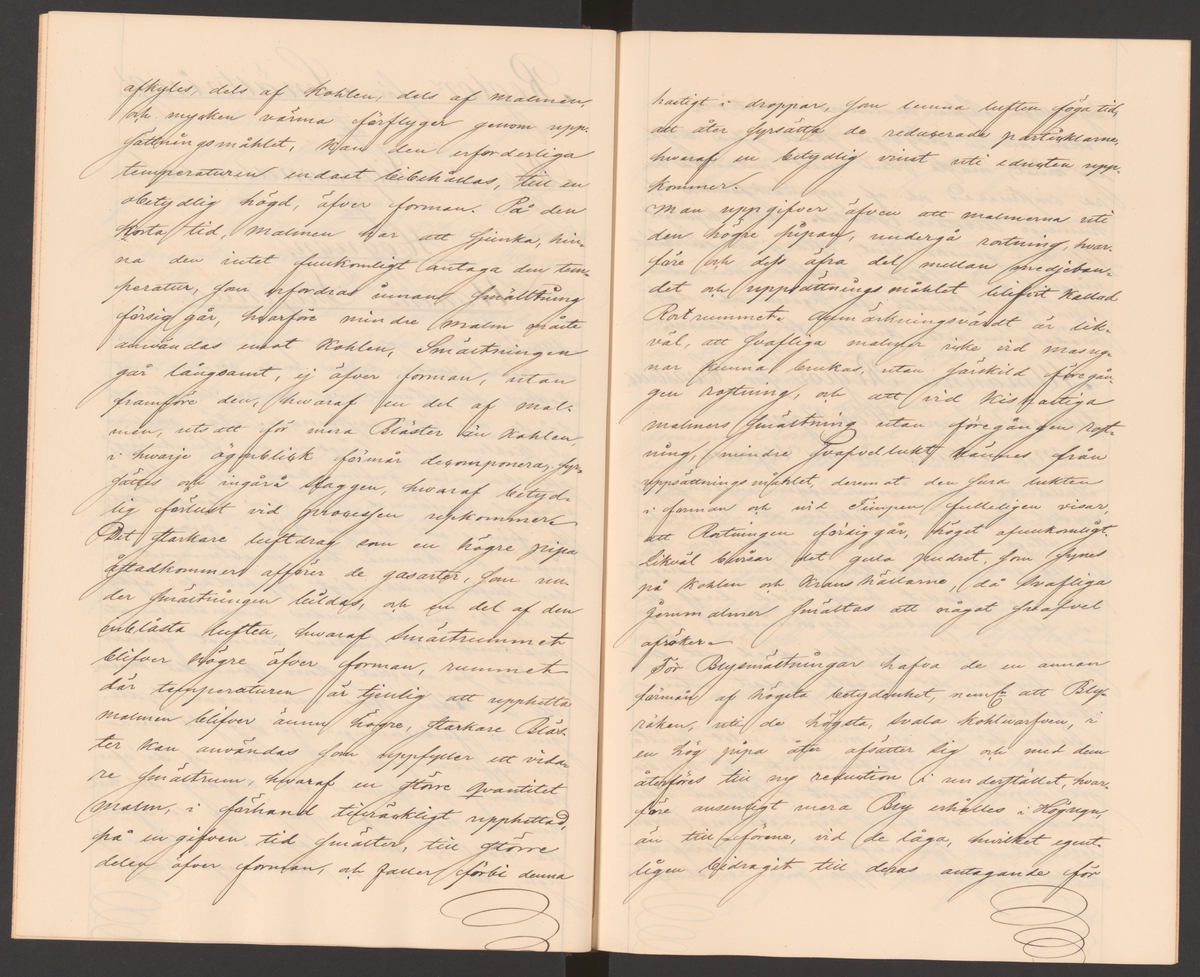 afkyles, dels af kohlen, dels af malmen,
och mycken värma förflyger genom upp-
sättningsmåhlet, kan den erforderliga
temperaturen endast bibehållas, till en
obetydlig högd, öfver forman. På den
korta tid, malmen har att sjunka, hin-
na den intet fullkomligt antaga den tem-
peratur, som erfordras innan smältning
försiggår, hvarföre mindre malm måste
användas emot kohlen, Smältningen
går långsamt, ej öfver forman, utan
framföre den, hvaraf en del af mal-
men, utsatt för mera Bläster än kohlen
i hvarje ögenblick förmår decomponera, syr-
sättes och ingår i slaggen, hvaraf betyd-
lig förlust vid processen upkommer.
Det starkare luftdrag som en högre pipa
åstadkommer afförer de gasarter, som un-
der smältningen bildas, och en del af den
inblåsta luften, hvaraf smältrummet
blifver högre öfver forman, rummet
där temperaturen är tjenlig att upphetta
malmen blifver ännu högre, starkare Bläs-
ter kan användas som uppfyller ett vida-
re smältrum, hvaraf en större quantitet
malm, i förhand tilräckligt upphettad,
på en gifven tid smälter, till större
delen öfver forman, och faller förbi denna
hastigt i droppar, som lemna luften föga tid,
att åter syrsätta de reducerade partiklarne,
hvaraf en betydlig vinst uti educten upp-
kommer.
Man uppgifver äfven att malmerna uti
den högre pipan, undergå rostning, hvar-
före och dess öfra del mellan medjeban-
det och uppsättningsmåhlet blifvit kallad
Rostrummet. Anmärkningsvärdt är lik-
väl, att svafliga malmer icke vid masug-
nar kunna brukas, utan särskild föregån-
gen rostning, och att vid kishaltiga
malmers smältning utan föregången rost-
ning, mindre svafvellukt kännes från
uppsättningsmåhlet, deremot den sura lukten
i forman och vid Timpen fulleligen visar,
att Rostningen försiggår, högst ofullkomligt.
Likväl bevisar det gula pudret, som synes
på kohlen och Kranshällarne, då svafliga
jernmalmer smältas att något svafvel
afröker.
För Blysmältningar hafva de en annan
förmån af högsta betydenhet, neml. att Bly-
röken, uti de högsta, svala kohlhvarfven, i
en hög pipa åter afsätter sig och med dem
återföres till ny reduction i understället, hvar-
före ansenligt mera Bly erhålles i Högugn,
än tillförene, vid de låga, hvilket egent-
ligen bidragit till deras antagande för